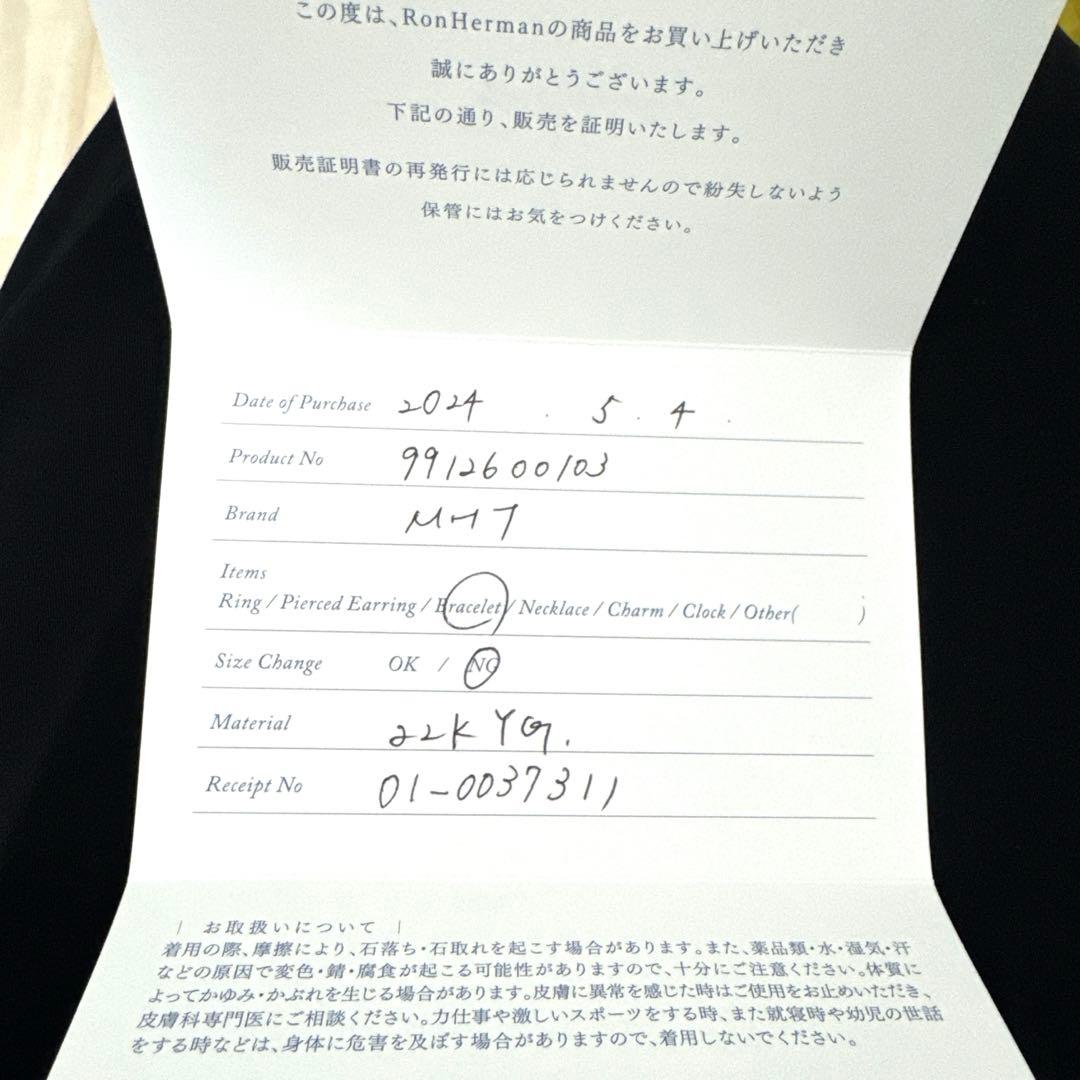 この度は、RonHermanの商品をお買い上げいただき
誠にありがとうございます。
下記の通り、販売を証明いたします。
販売証明書の再発行には応じられませんので紛失しないよう
保管にはお気をつけください。
Date of Purchase 2024 . 5 . 4 .
Product No 9912600103
Brand MHT
Items
Ring / Pierced Earring / Bracelet / Necklace / Charm / Clock / Other( )
Size Change OK / NG
Material 22K YG.
Receipt No 01-0037311
| お取扱いについて |
着用の際、摩擦により、石落ち・石取れを起こす場合があります。また、薬品類・水・湿気・汗
などの原因で変色・錆・腐食が起こる可能性がありますので、十分にご注意ください。体質に
よってかゆみ・かぶれを生じる場合があります。皮膚に異常を感じた時はご使用をお止めいただき、
皮膚科専門医にご相談ください。力仕事や激しいスポーツをする時、また就寝時や幼児の世話
をする時などは、身体に危害を及ぼす場合がありますので、着用しないでください。